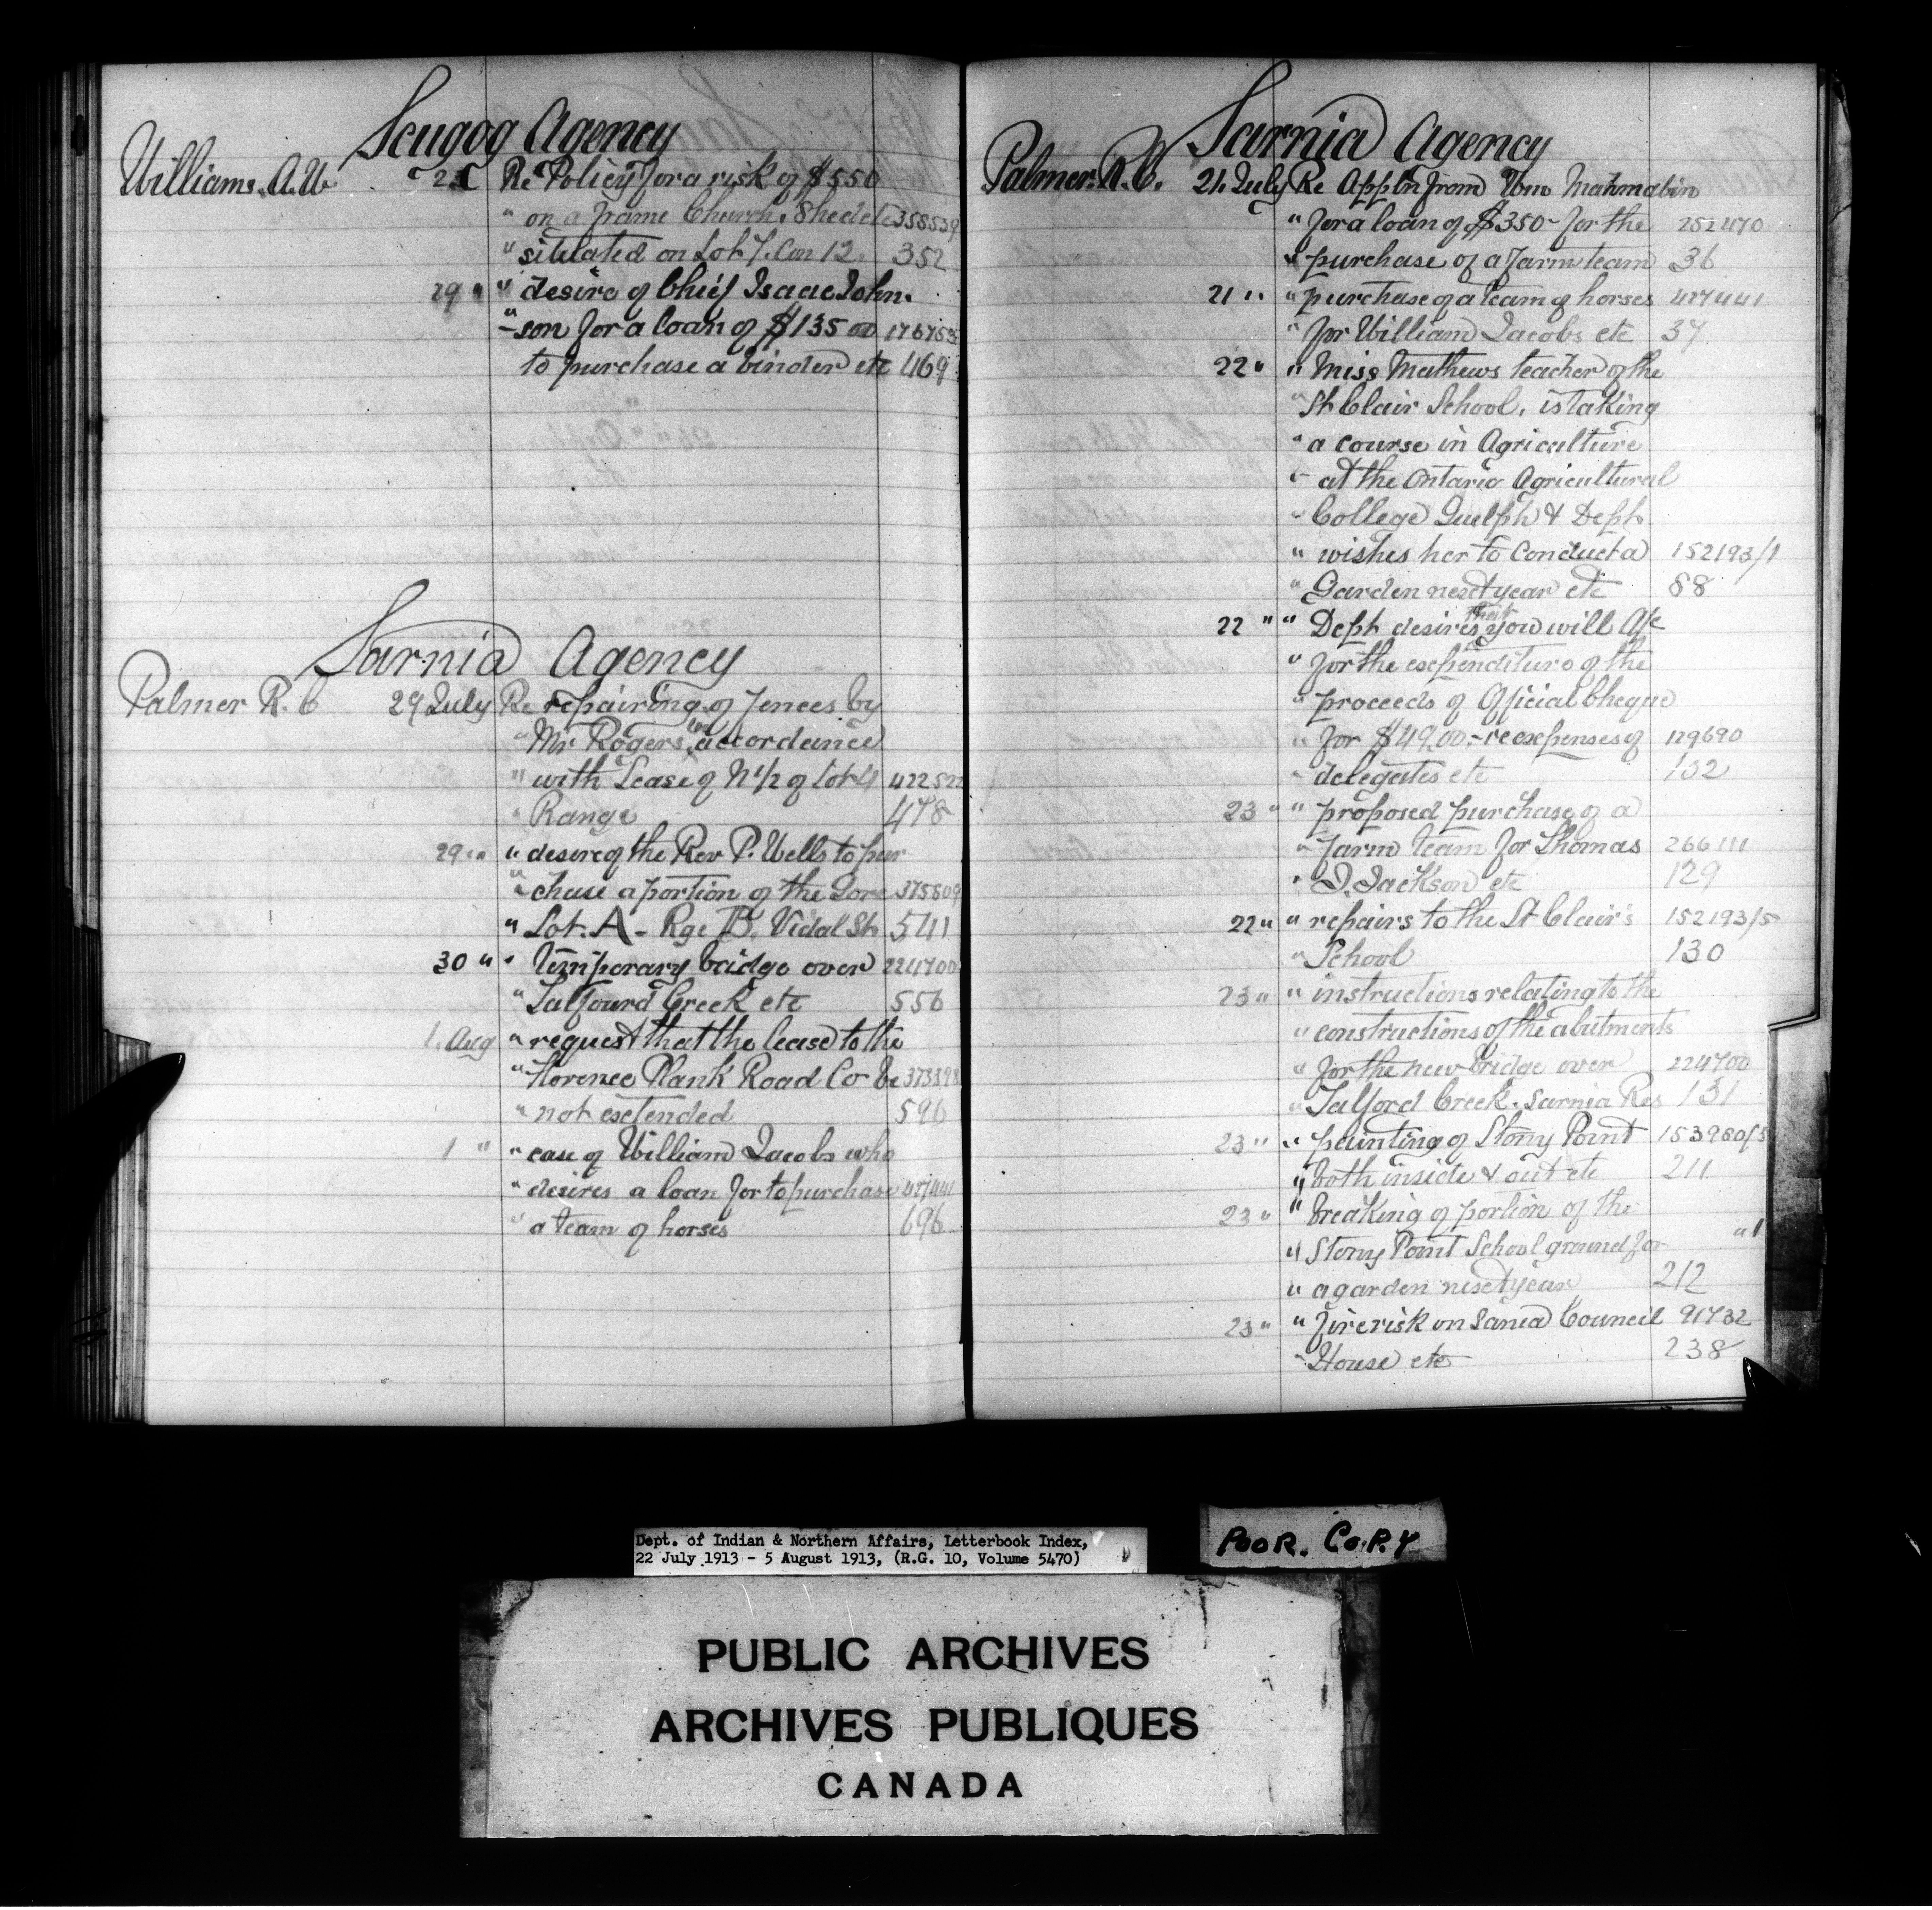 Scugog Agency
Williams. A.W. Re Policy for a risk of $550
" on a frame Church, Shed etc 358539
" situated on Lot 7. Con 12. 352
29 " " desire of Chief Isaac John-
" -son for a loan of $135 00
to purchase a binder etc 469
Sarnia Agency
Palmer R. C 29 July Re repairing of fences by
" Mr Rogers, in accordance
" with Lease of N 1/2 of Lot 4 422522
" Range 478
29 " " desire of the Rev P. Wells to pur
" chase a portion of the Gore 375809
" Lot. A - Rge B. Vidal St 541
30 " " Temporary bridge over 224700
" Talfourd Creek etc 556
1. Aug " request that the lease to the
" Florence Plank Road Co be 373398
" not extended 596
1 " " case of William Jacobs who
" desires a loan for to purchase 427441
" a team of horses 696
Sarnia Agency
Palmer. R.C. 21. July Re Appln from Wm
" for a loan of $350- for the 252470
" purchase of a farm team 36
21 " " purchase of a team of horses 427441
" for William Jacobs etc 37
22 " " Miss Mathews teacher of the
" St Clair School, is taking
" a course in Agriculture
" at the Ontario Agricultural
" College Guelph & Dept
" wishes her to conduct a 152193/1
" Garden next year etc 88
22 " " Dept desires that you will a/c
" for the expenditure of the
" proceeds of Official Cheque
" for $49.00.- re expenses of 129690
" delegates etc 102
23 " " proposed purchase of a
" farm team for Thomas 266111
" D. Jackson etc 129
22 " " repairs to the St Clair's 152193/5
" School 130
23 " " instructions relating to the
" constructions of the abutments
" for the new bridge over 224700
" Talford Creek. Sarnia Res 131
23 " " painting of Stony Point 153980/5
" both inside & out etc 211
23 " " breaking of portion of the
" Stony Point School ground for " 1
" a garden next year 212
23 " " fire risk on Sarnia Council 91732
" House etc 238
Dept. of Indian & Northern Affairs, Letterbook Index,
22 July 1913 - 5 August 1913, (R.G. 10, Volume 5470)
POOR. COPY
PUBLIC ARCHIVES
ARCHIVES PUBLIQUES
CANADA